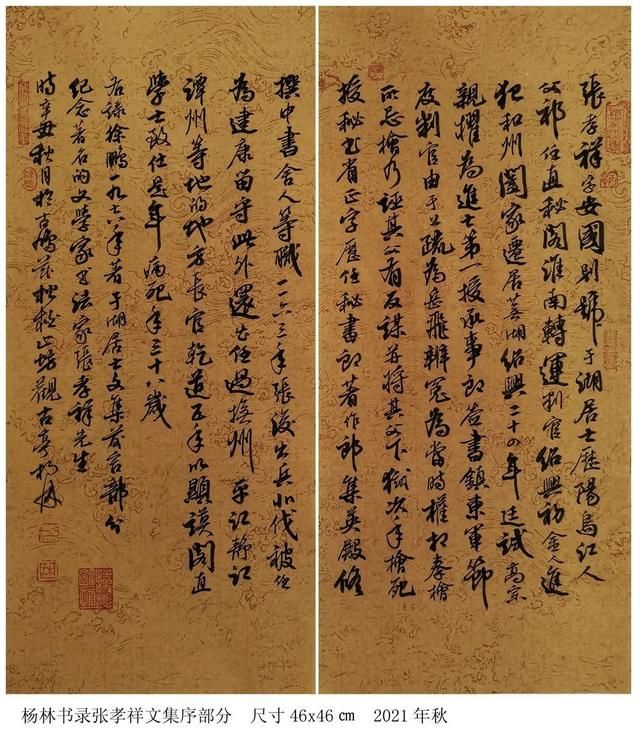 張孝祥字安國別號于湖居士歷陽烏江人
父祁任直秘閣淮南轉運判官紹興初金人進
犯和州闔家遷居蕪湖紹興二十四年廷試高宗
親擢為進士第一授承事郎簽書鎮東軍節
度判官由于上疏為岳飛辯冤為當時權相秦檜
所忌檜乃誣其父有反謀并將其父下獄次年檜死
授秘書省正字歷任秘書郎著作郎集英殿修
撰中書舍人等職一一六三年張浚出兵北伐被任
為建康留守此外還出任過撫州平江靜江
譚州等地的地方長官乾道五年以顯謨閣直
學士致仕是年病死年三十八歲
右錄徐鵬一九七六年著于湖居士文集前言部分
紀念著名的文學家書法家張孝祥先生
時辛丑秋月於古鳩茲
杨林书录张孝祥文集序部分 尺寸46x46㎝ 2021年秋